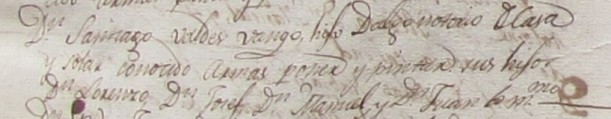 Dn Santiago Valdes Vango, hijo Dalgo notorio Casa
y solar conocido armas poner y pintar: sus hijos
Dn Lorenzo, Dn Josef, Dn Manuel y Dn Juan lo mmo